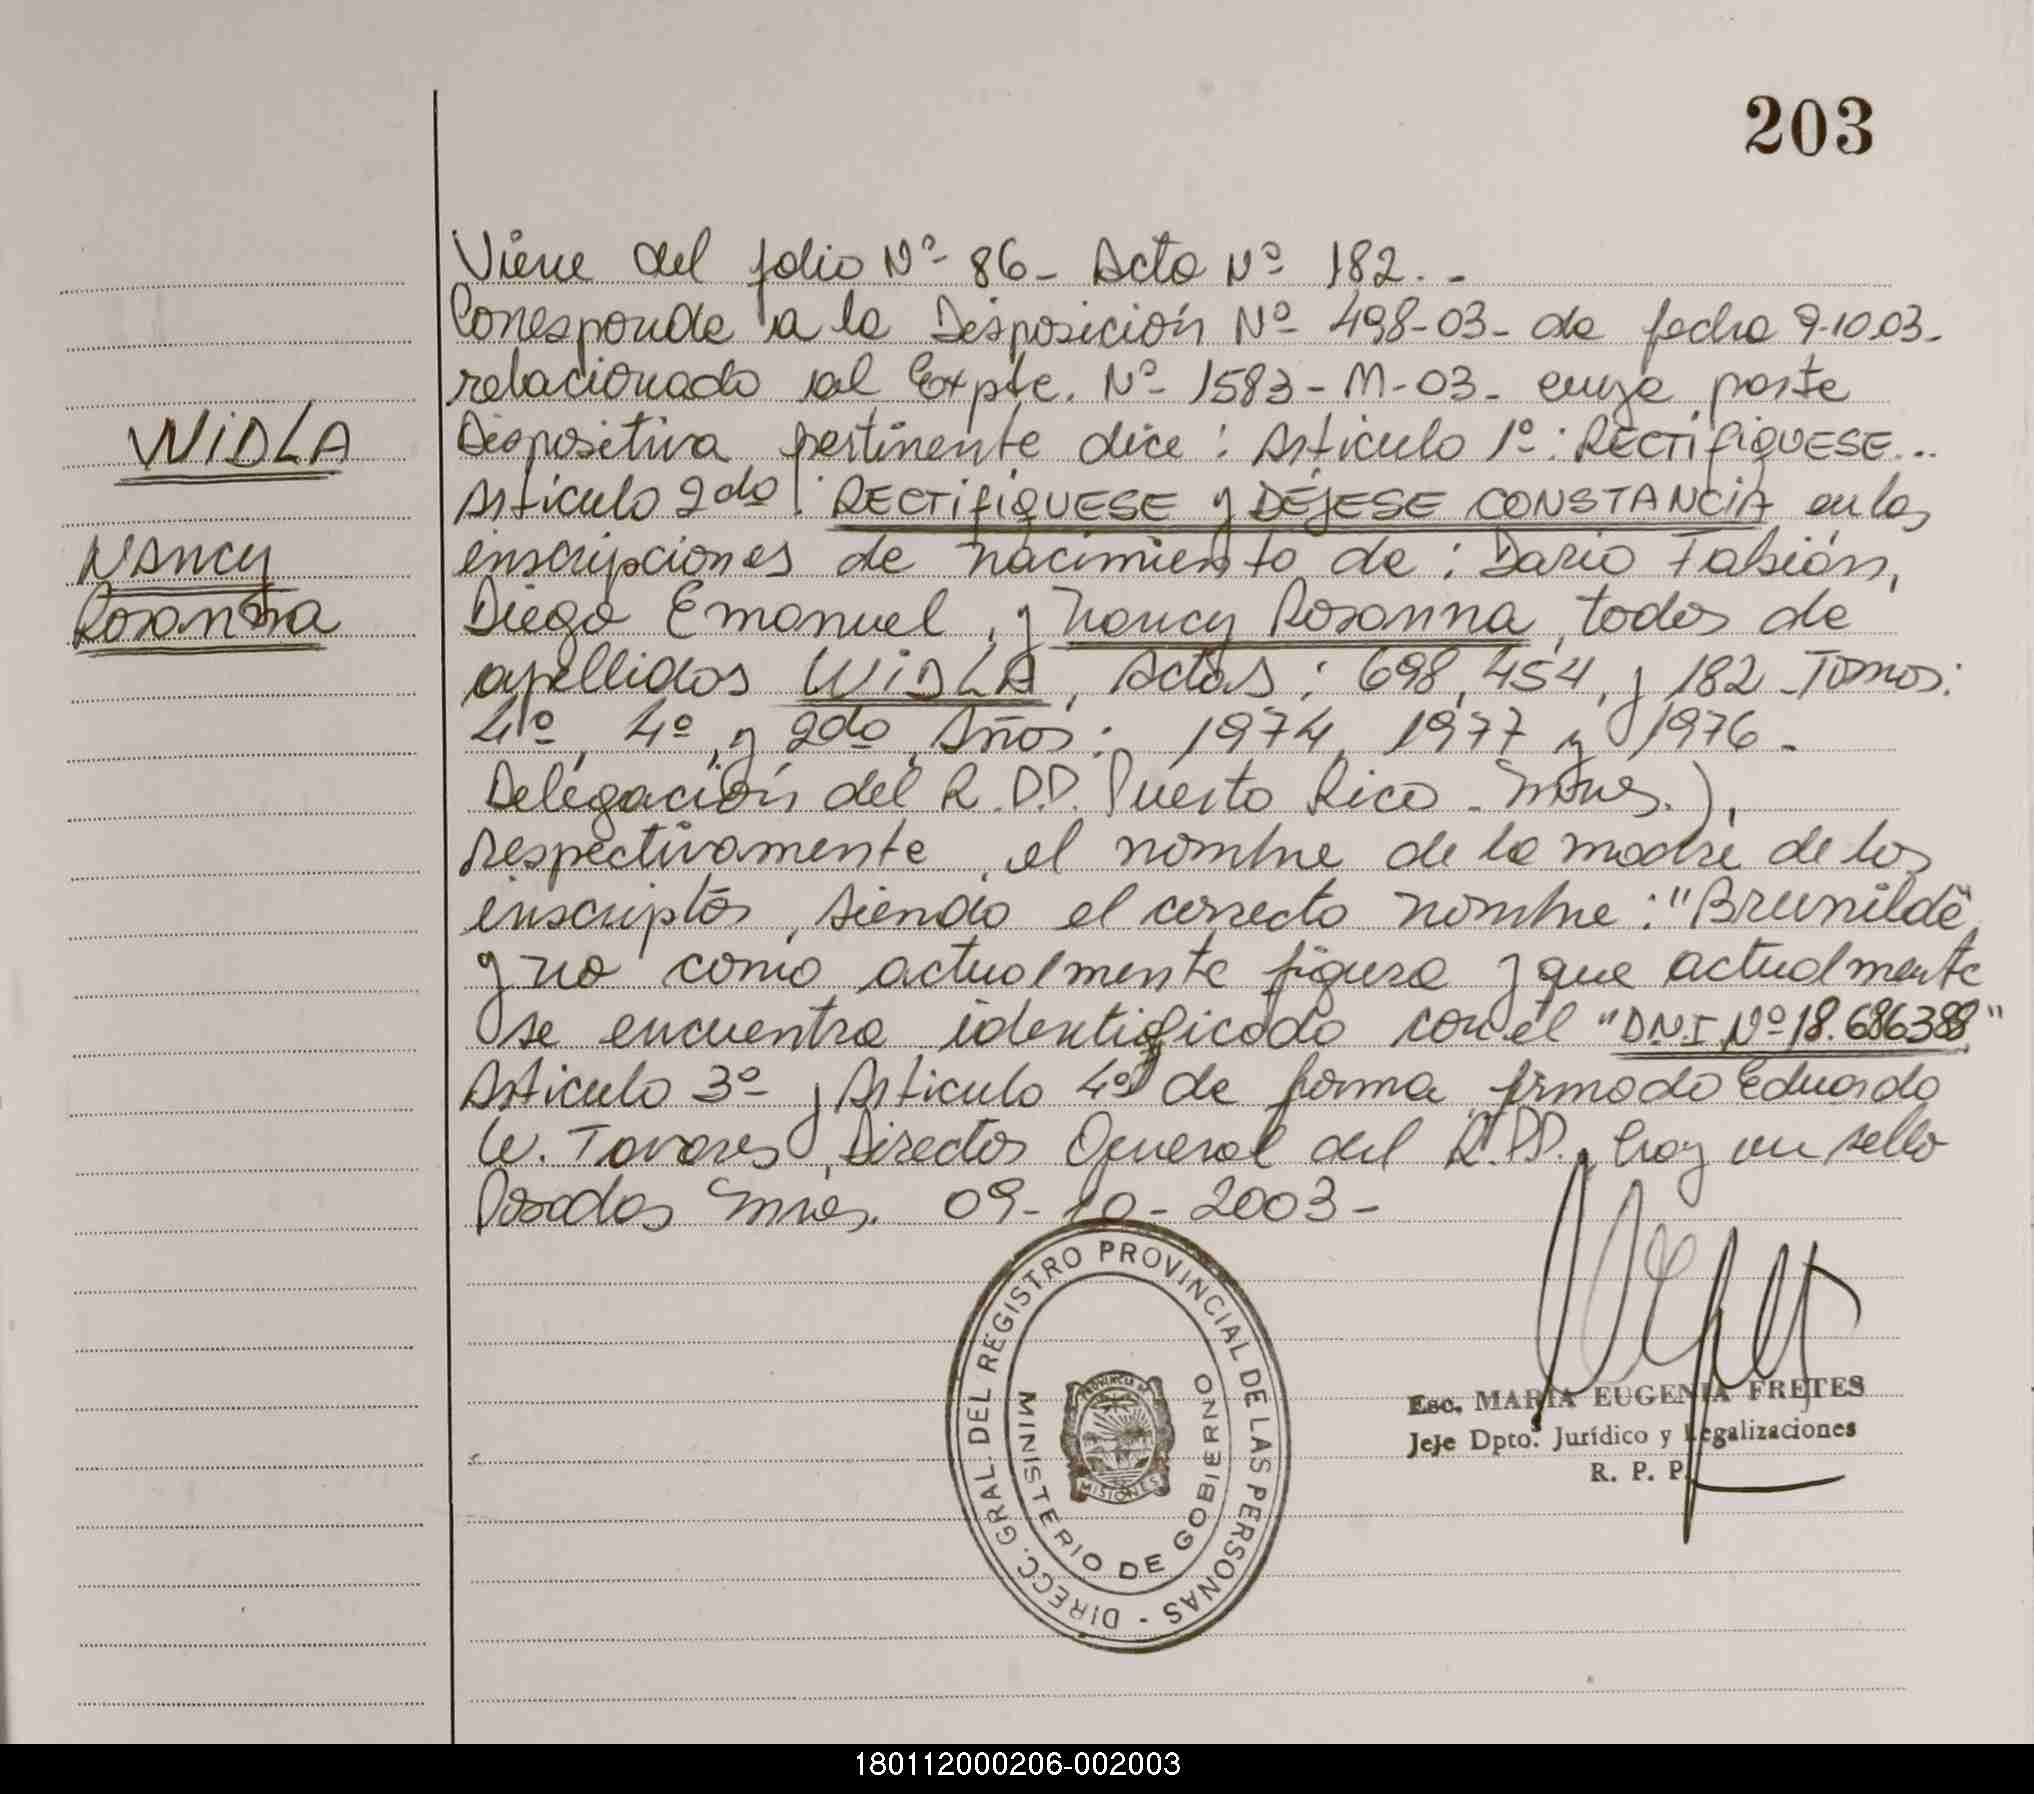 203
Viene del folio Nº 86- Acta Nº 182.-
Corresponde a la Disposición Nº 498-03- de fecha 9-10.03-
relacionado al Expte. Nº 1583-M-03- cuya parte
WiDLA
Dispositiva pertinente dice: Artículo 1º: RECTIFIQUESE...
Artículo 2do: RECTIFIQUESE y DÉJESE CONSTANCIA en las
Nancy
inscripciones de nacimiento de: Dario Fabián,
Rosanna
Diego Emanuel, y Nancy Rosanna, todos de
apellidos WiDLA, Actas: 698, 454, y 182 - Tomos:
4º, 4º, y 2do, Años: 1974, 1977 y 1976-
Delegación del R.P.P. Puerto Rico - Mnes.),
respectivamente, el nombre de la madre de los
inscriptos, siendo el correcto nombre: "Brunilde"
y no como actualmente figura y que actualmente
se encuentra identificado con el "D.N.I Nº 18.686388"
Artículo 3º y Artículo 4º de forma firmado Eduardo
W. Tavares, Director General del R.P.P., hay un sello
Posadas Mnes. 09-10-2003-
DIRECC. GRAL. DEL REGISTRO PROVINCIAL DE LAS PERSONAS -
MINISTERIO DE GOBIERNO
PROVINCIA DE
MISIONES
Esc. MARIA EUGENIA FRETES
Jefe Dpto. Jurídico y Legalizaciones
R. P. P.
180112000206-002003